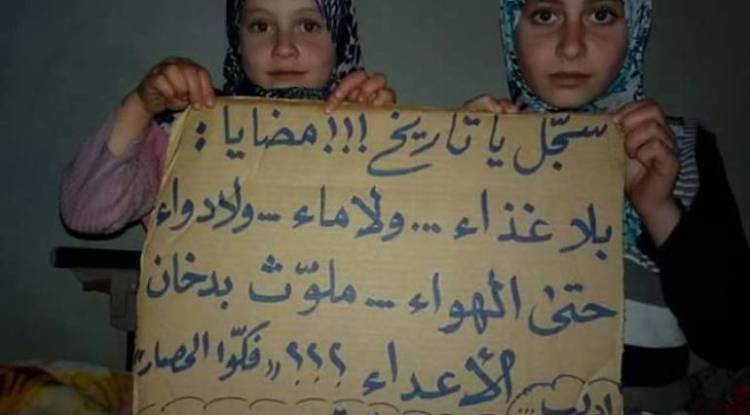 سجّل يا تاريخ !!! مضايا :
بلا غذاء ... ولا ماء ... ولا دواء
حتى الهواء ... ملوّث بدخان
الأعداء ؟؟؟ "فكّوا الحصار"